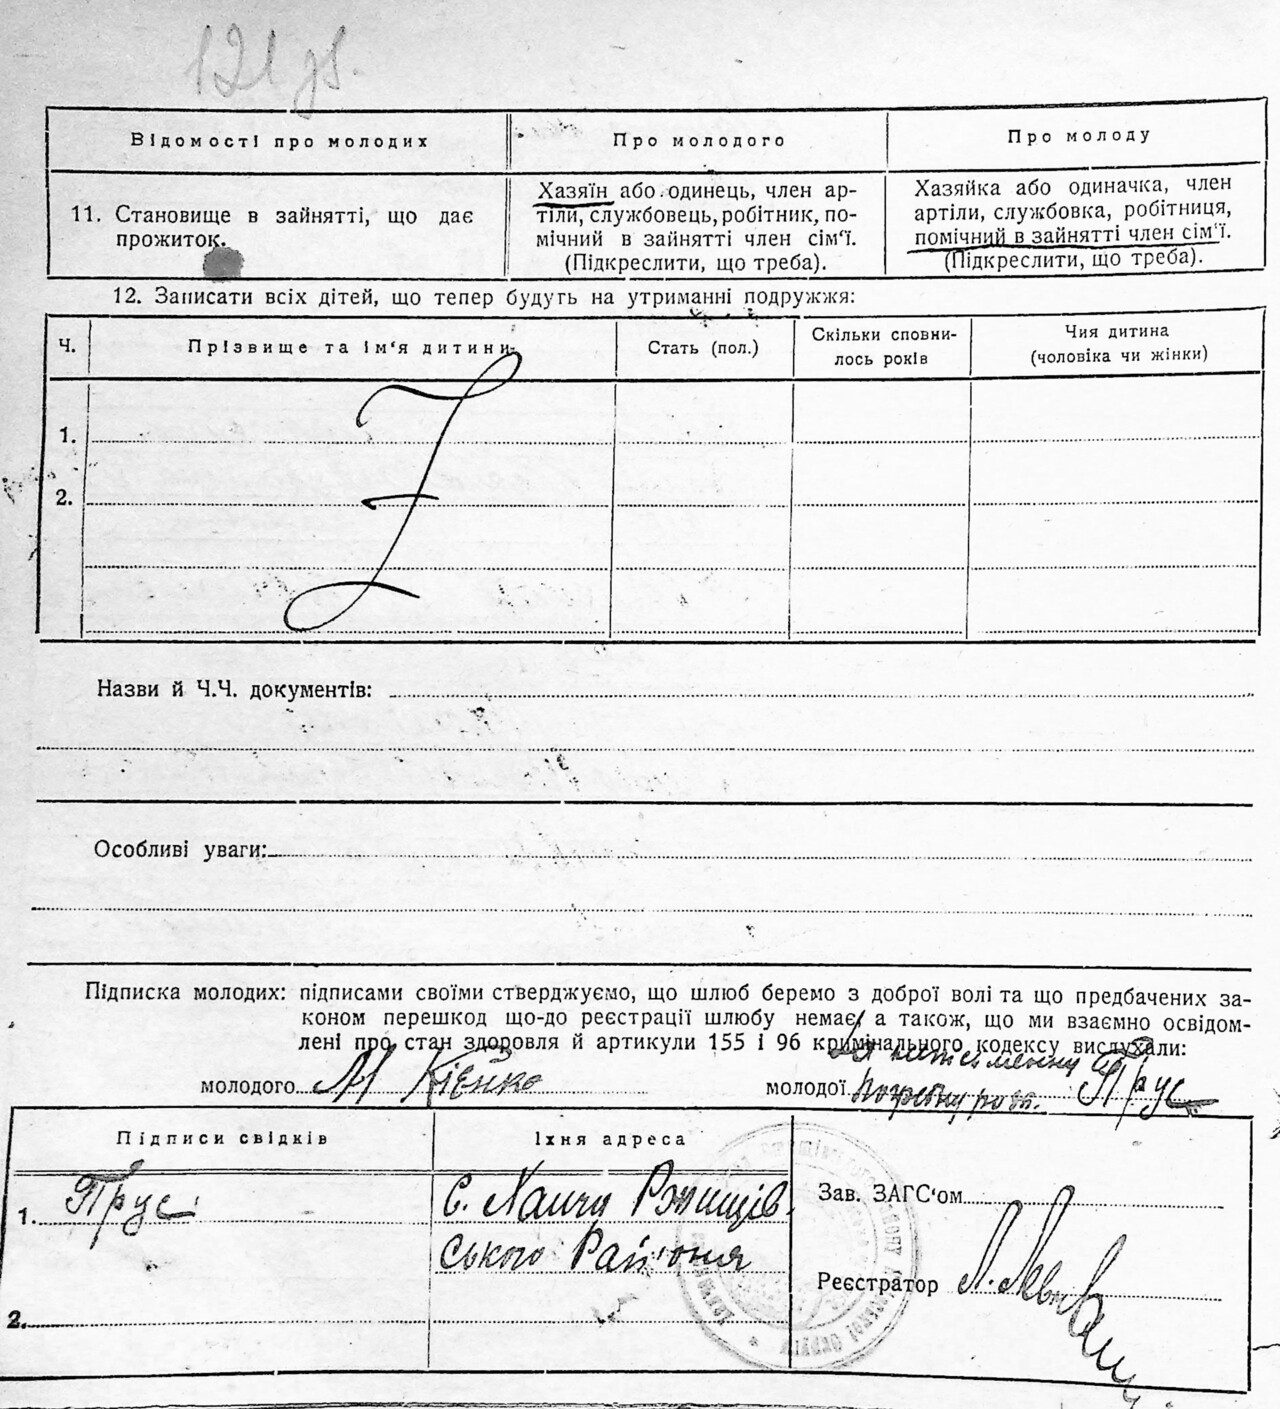 121 зв.
Відомості про молодих
Про молодого
Про молоду
11. Становище в зайнятті, що дає
прожиток.
Хазяїн або одинець, член ар-
тіли, службовець, робітник, по-
мічний в зайнятті член сім'ї.
(Підкреслити, що треба).
Хазяйка або одиначка, член
артіли, службовка, робітниця,
помічний в зайнятті член сім'ї.
(Підкреслити, що треба).
12. Записати всіх дітей, що тепер будуть на утриманні подружжя:
Ч.
Прізвище та ім'я дитини
Стать (пол.)
Скільки сповни-
лось років
Чия дитина
(чоловіка чи жінки)
1.
2.
Назви й Ч.Ч. документів:
Особливі уваги:
Підписка молодих: підписами своїми стверджуємо, що шлюб беремо з доброї волі та що предбачених за-
коном перешкод що-до реєстрації шлюбу немає, а також, що ми взаємно освідом-
лені про стан здоровля й артикули 155 і 96 кримінального кодексу вислухали:
молодого М Кієнко
молодої
Прус
Підписи свідків
Їхня адреса
1. Прус
С. Ржищів
ського Район
2.
Зав. ЗАГС'ом
Реєстратор